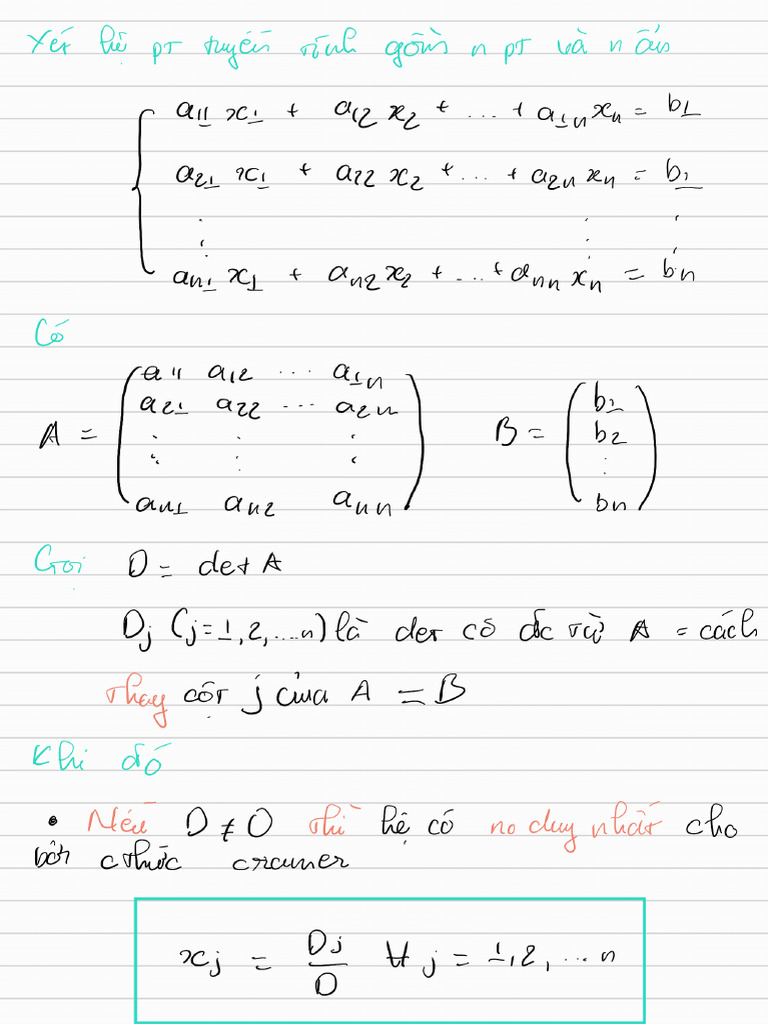 Xét hệ pt tuyến tính gồm n pt và n ẩn
a11 x1 + a12 x2 + ... + a1n xn = b1
a21 x1 + a22 x2 + ... + a2n xn = b2
⋮ ⋮ ⋮
an1 x1 + an2 x2 + ... + ann xn = bn
Có
a11 a12 ... a1n
a21 a22 ... a2n b1
A = ⋮ ⋮ ⋮ B = b2
⋮
an1 an2 ann bn
Gọi D = det A
Dj (j = 1, 2, ... n) là det có đc từ A = cách
thay cột j của A = B
Khi đó
• Nếu D ≠ 0 thì hệ có no duy nhất cho
bởi cthức cramer
xj = Dj/D ∀ j = 1, 2, ... n